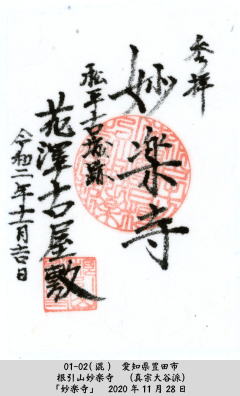 参拝
妙楽寺
松平古跡
花澤古屋敷
令和二年十一月吉日
01-02(混)　愛知県豊田市
根引山妙楽寺　(真宗大谷派)
「妙楽寺」　2020年11月28日